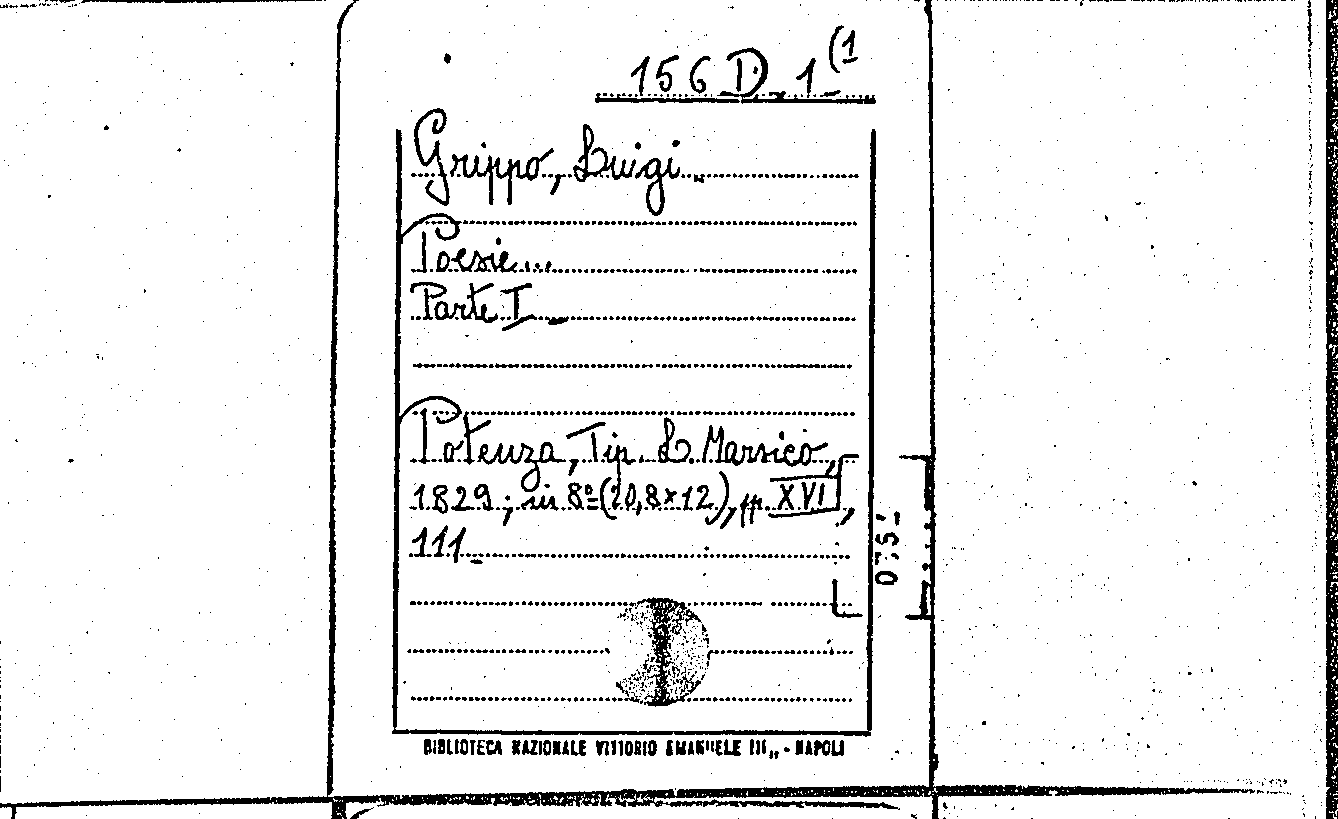 156 D 1 (1
Grippo, Luigi.
Poesie...
Parte I_
Potenza, Tip. L. Marsico,
1829; in 8º (20,8×12), pp. XVI,
111_
075
BIBLIOTECA NAZIONALE VITTORIO EMANUELE III„ - NAPOLI